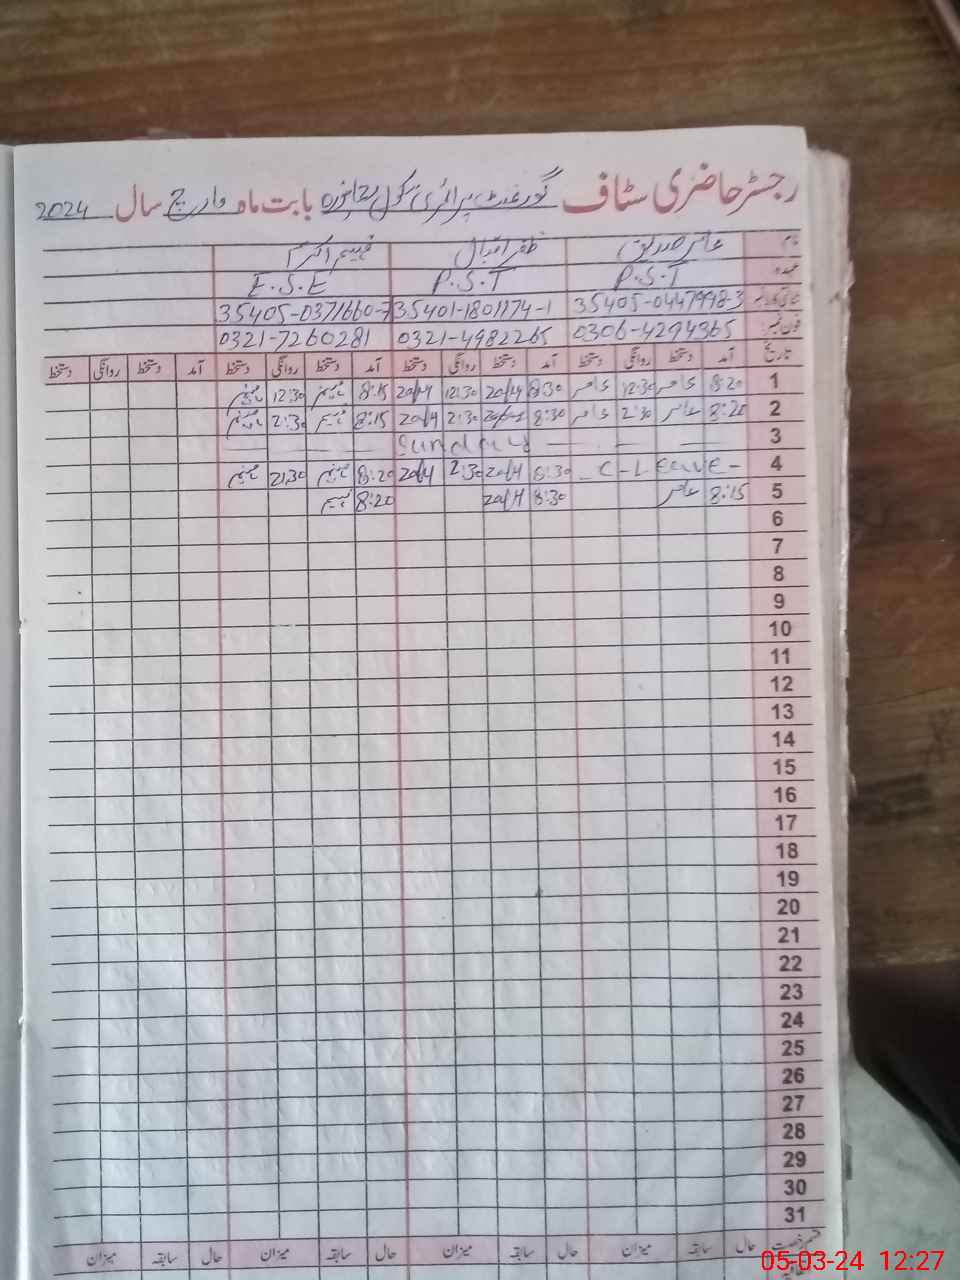 رجسٹر حاضری سٹاف گورنمنٹ پرائمری سکول بابت ماہ مارچ سال 2024
نام عامر صدیق ظفر اقبال فہیم اکرم
عہدہ P.S.T P.S.T E.S.E
شناختی کارڈ نمبر 35405-0447998-3 35401-1801174-1 35405-0371660-7
فون نمبر: 0306-4294365 0321-4982265 0321-7260281
تاریخ آمد دستخط روانگی دستخط آمد دستخط روانگی دستخط آمد دستخط روانگی دستخط آمد دستخط روانگی دستخط
1 8:20 عامر 12:30 عامر 8:30 12:30 8:15 12:30
2 8:20 عامر 2:30 عامر 8:30 2:30 8:15 2:30
3 Sunday
4 - C - Leave - 8:30 2:30 8:20 2:30
5 8:15 عامر 8:30 8:20
6
7
8
9
10
11
12
13
14
15
16
17
18
19
20
21
22
23
24
25
26
27
28
29
30
31
قسم رخصت حال سابقہ میزان حال سابقہ میزان حال سابقہ میزان حال سابقہ میزان
05-03-24 12:27